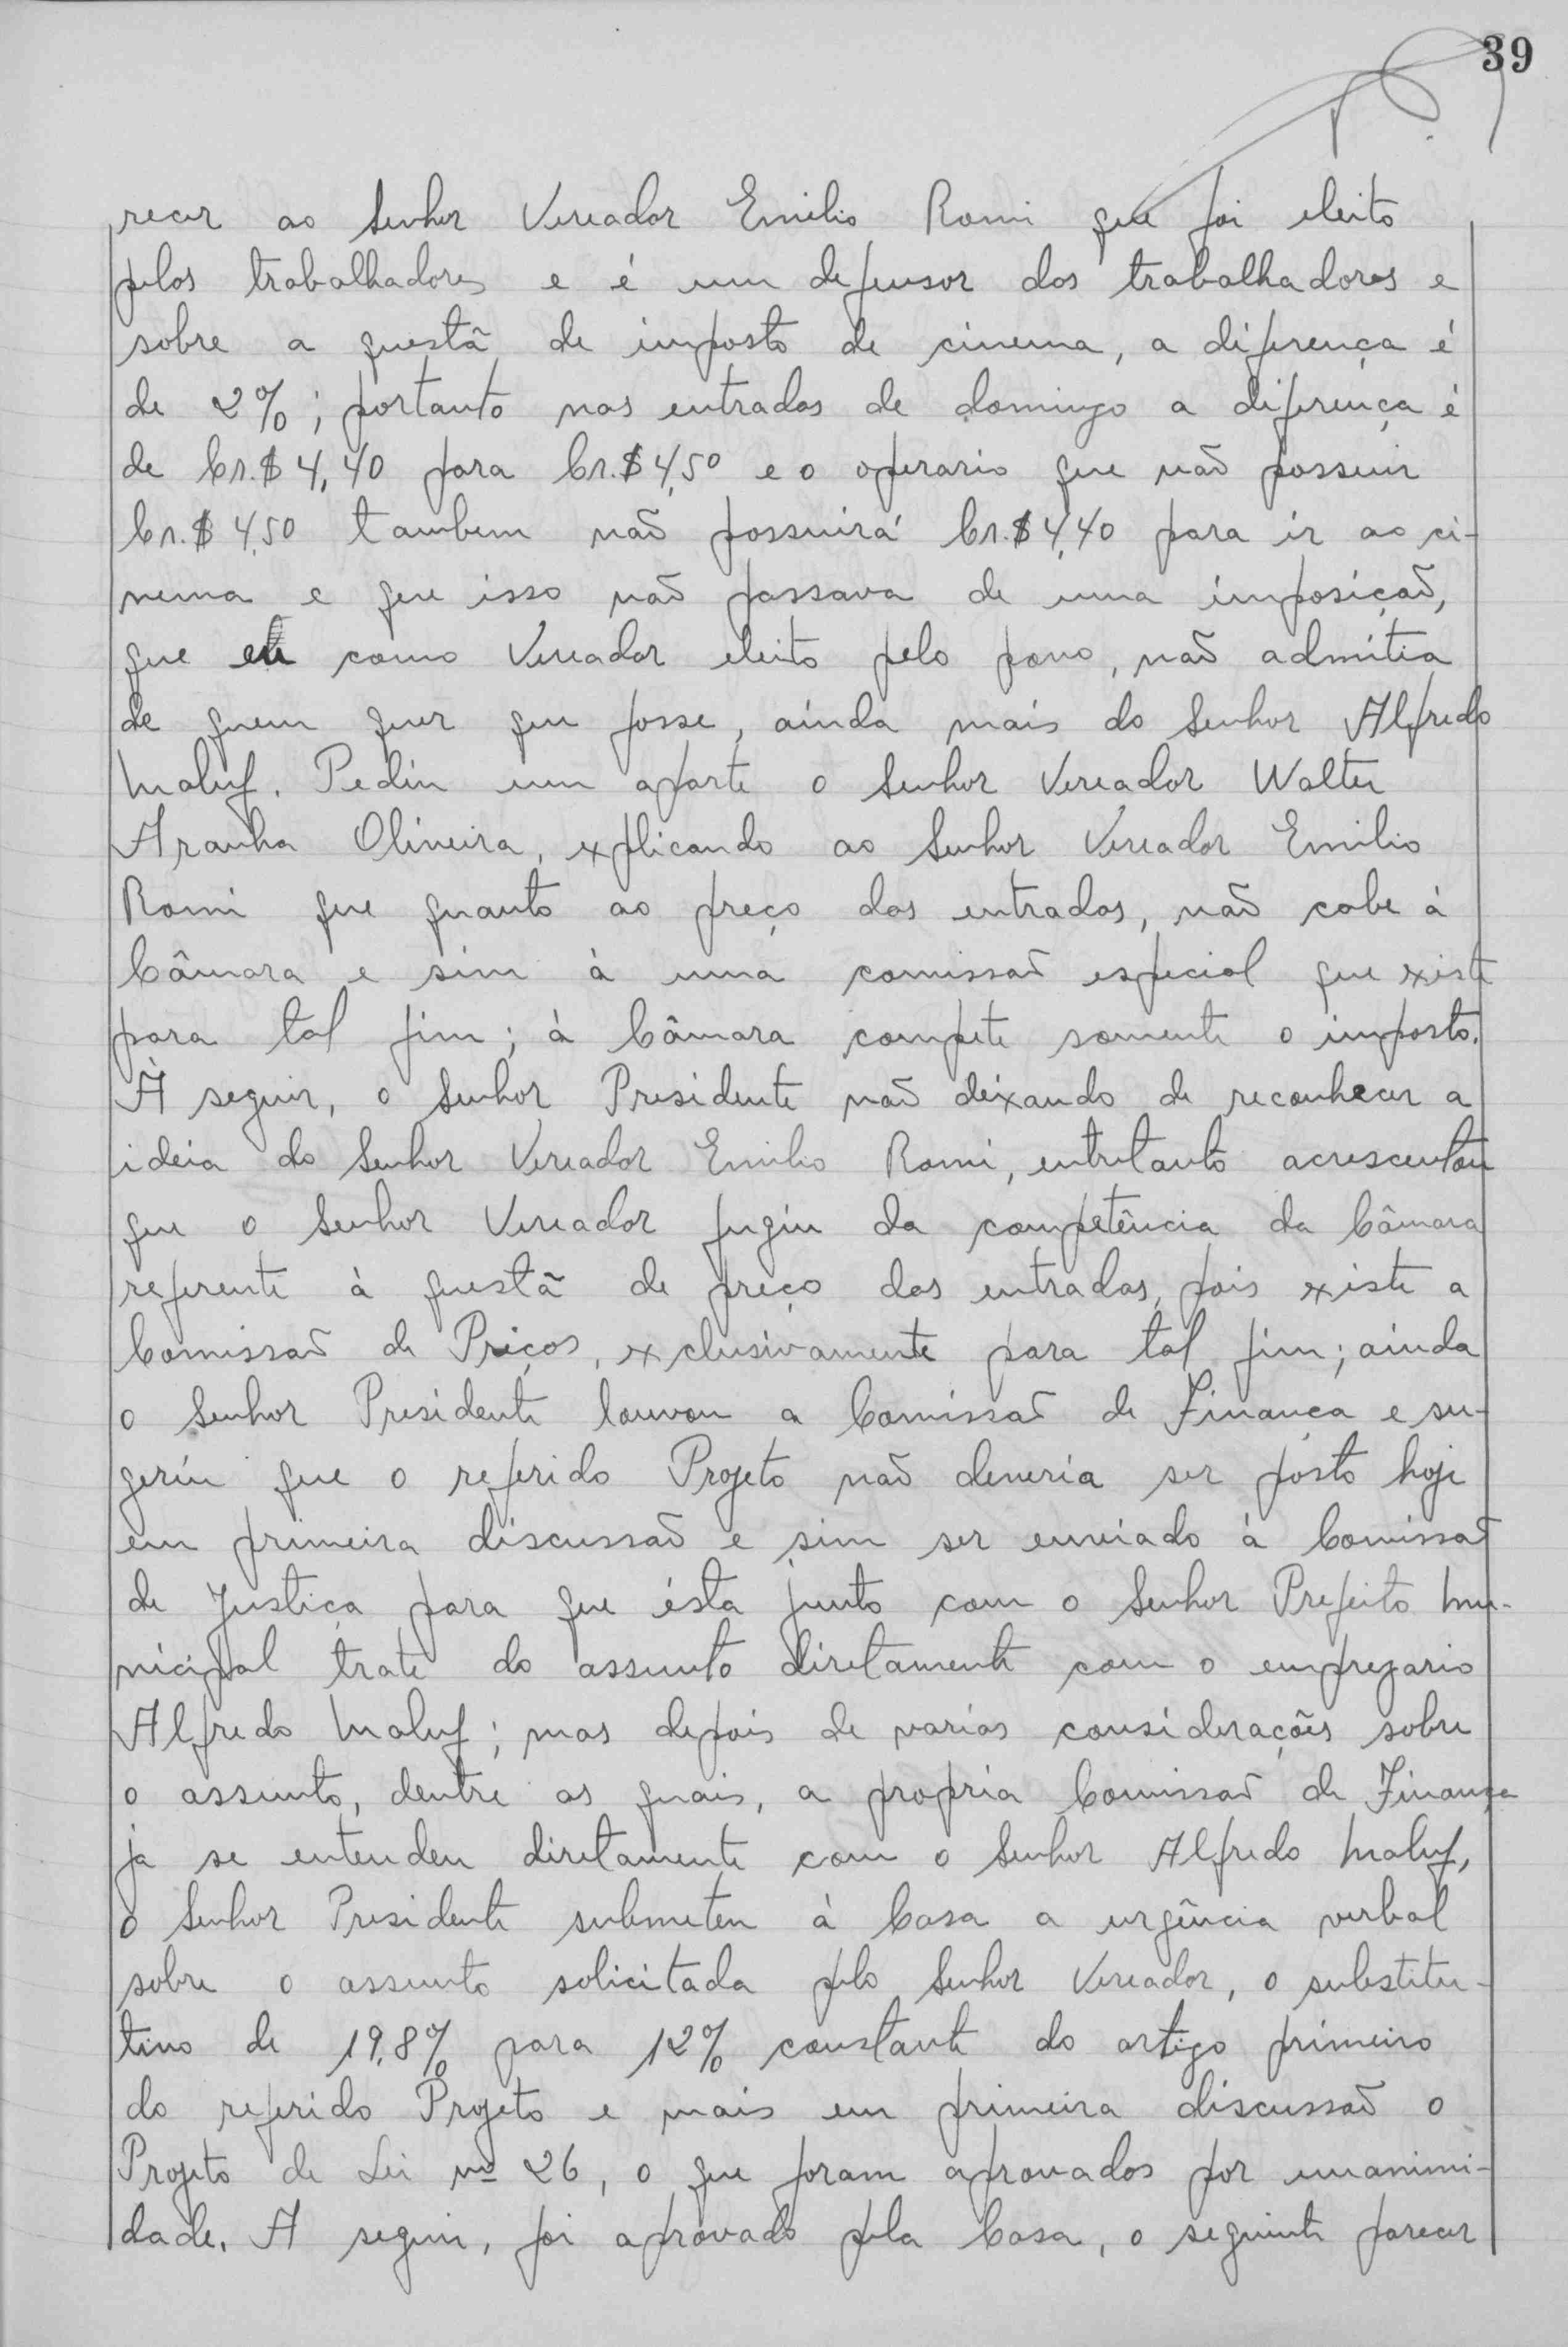 39
recer ao Senhor Vereador Emilio Romi que foi eleito
pelos trabalhadores e é um defensor dos trabalhadores e
sobre a questã de imposto de cinema, a diferença é
de 2%; portanto nas entradas de domingo a diferença é
de Cr.$ 4,40 para Cr.$ 4,50 e o operario que não possuir
Cr.$ 4,50 tambem não possuirá Cr.$ 4,40 para ir ao ci-
nema e que isso não passava de uma imposição,
que ele como Vereador eleito pelo povo, não admitia
de quem quer que fosse, ainda mais do Senhor Alfredo
Maluf. Pediu um aparte o Senhor Vereador Walter
Aranha Oliveira, explicando ao Senhor Vereador Emilio
Romi que quanto ao preço das entradas, não cabe à
Câmara e sim à uma comissão especial que existe
para tal fim; à Câmara compete somente o imposto.
À seguir, o Senhor Presidente não deixando de reconhecer a
ideia do Senhor Vereador Emilio Romi, entretanto acrescentou
que o Senhor Vereador fugiu da competência da Câmara
referente à questã de preço das entradas, pois existe a
Comissão de Preços, exclusivamente para tal fim; ainda
o Senhor Presidente louvou a Comissão de Finança e su-
geriu que o referido Projeto não deveria ser posto hoje
em primeira discussão e sim ser enviado à Comissão
de Justiça para que ésta junto com o Senhor Prefeito Mu-
nicipal trate do assunto diretamente com o emprezario
Alfredo Maluf; mas depois de varias considerações sobre
o assunto, dentre as quais, a propria Comissão de Finança
ja se entendeu diretamente com o Senhor Alfredo Maluf,
o Senhor Presidente submeteu à Casa a urgência verbal
sobre o assunto solicitada pelo Senhor Vereador, o substitu-
tivo de 19,8% para 12% constante do artigo primeiro
do referido Projeto e mais em primeira discussão o
Projeto de Lei nº 26, o que foram aprovados por unanimi-
dade. A seguir, foi aprovado pela Casa, o seguinte parecer